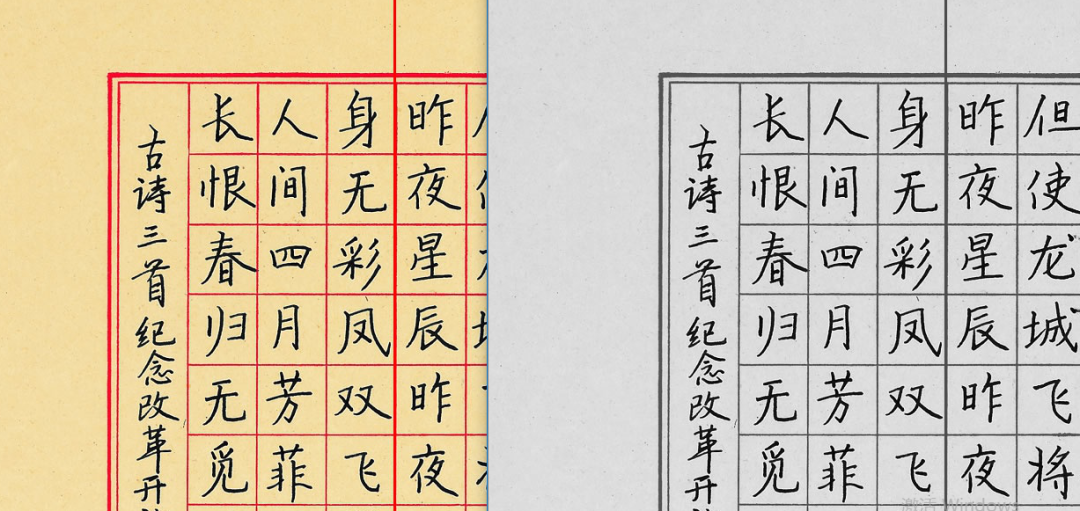 昨夜星辰昨夜
身无彩凤双飞
人间四月芳菲
长恨春归无觅
古诗三首纪念改革开
但使龙城飞将
昨夜星辰昨夜
身无彩凤双飞
人间四月芳菲
长恨春归无觅
古诗三首纪念改革开
激活 Windows